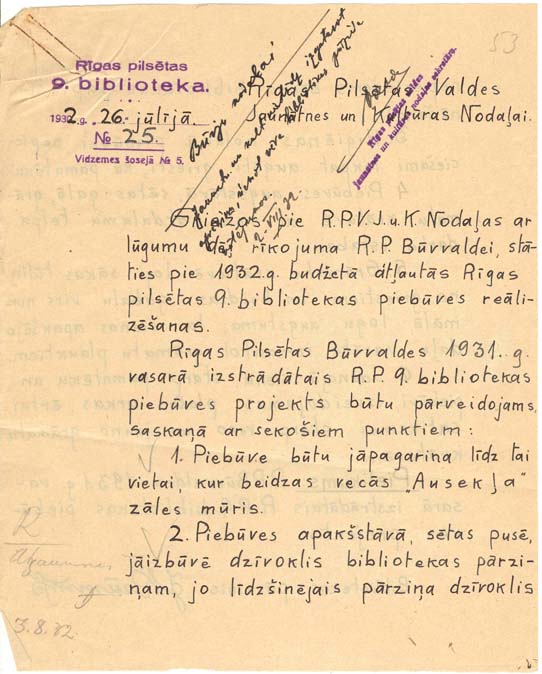 53
Rīgas pilsētas
9. biblioteka.
1932. g. 26. jūlijā
№ 25.
Vidzemes šosejā № 5.
Būvju nodaļai
2. VIII 32
Rīgas pilsētas valdes
Jaunatnes un kultūras nodaļas pārzinis.
Rīgas Pilsētas Valdes
Jaunatnes un Kultūras Nodaļai.
Griežos pie R.P.V.J.u.K. Nodaļas ar
lūgumu dot rīkojuma R.P. Būrvaldei, stā-
ties pie 1932.g. budžetā atļautās Rīgas
pilsētas 9. bibliotekas piebūves reāli-
zēšanas.
Rīgas Pilsētas Būrvaldes 1931..g.
vasarā izstrādātais R.P. 9. bibliotekas
piebūves projekts būtu pārveidojams,
saskaņā ar sekošiem punktiem:
1. Piebūve būtu jāpagarina līdz tai
vietai kur beidzas vecās "Ausekļa"
zāles mūris.
2. Piebūves apakšstāvā, sētas pusē,
jāizbūvē dzīvoklis bibliotekas pārzi-
ņam, jo līdzšinējais pārziņa dzīvoklis
3.8.32